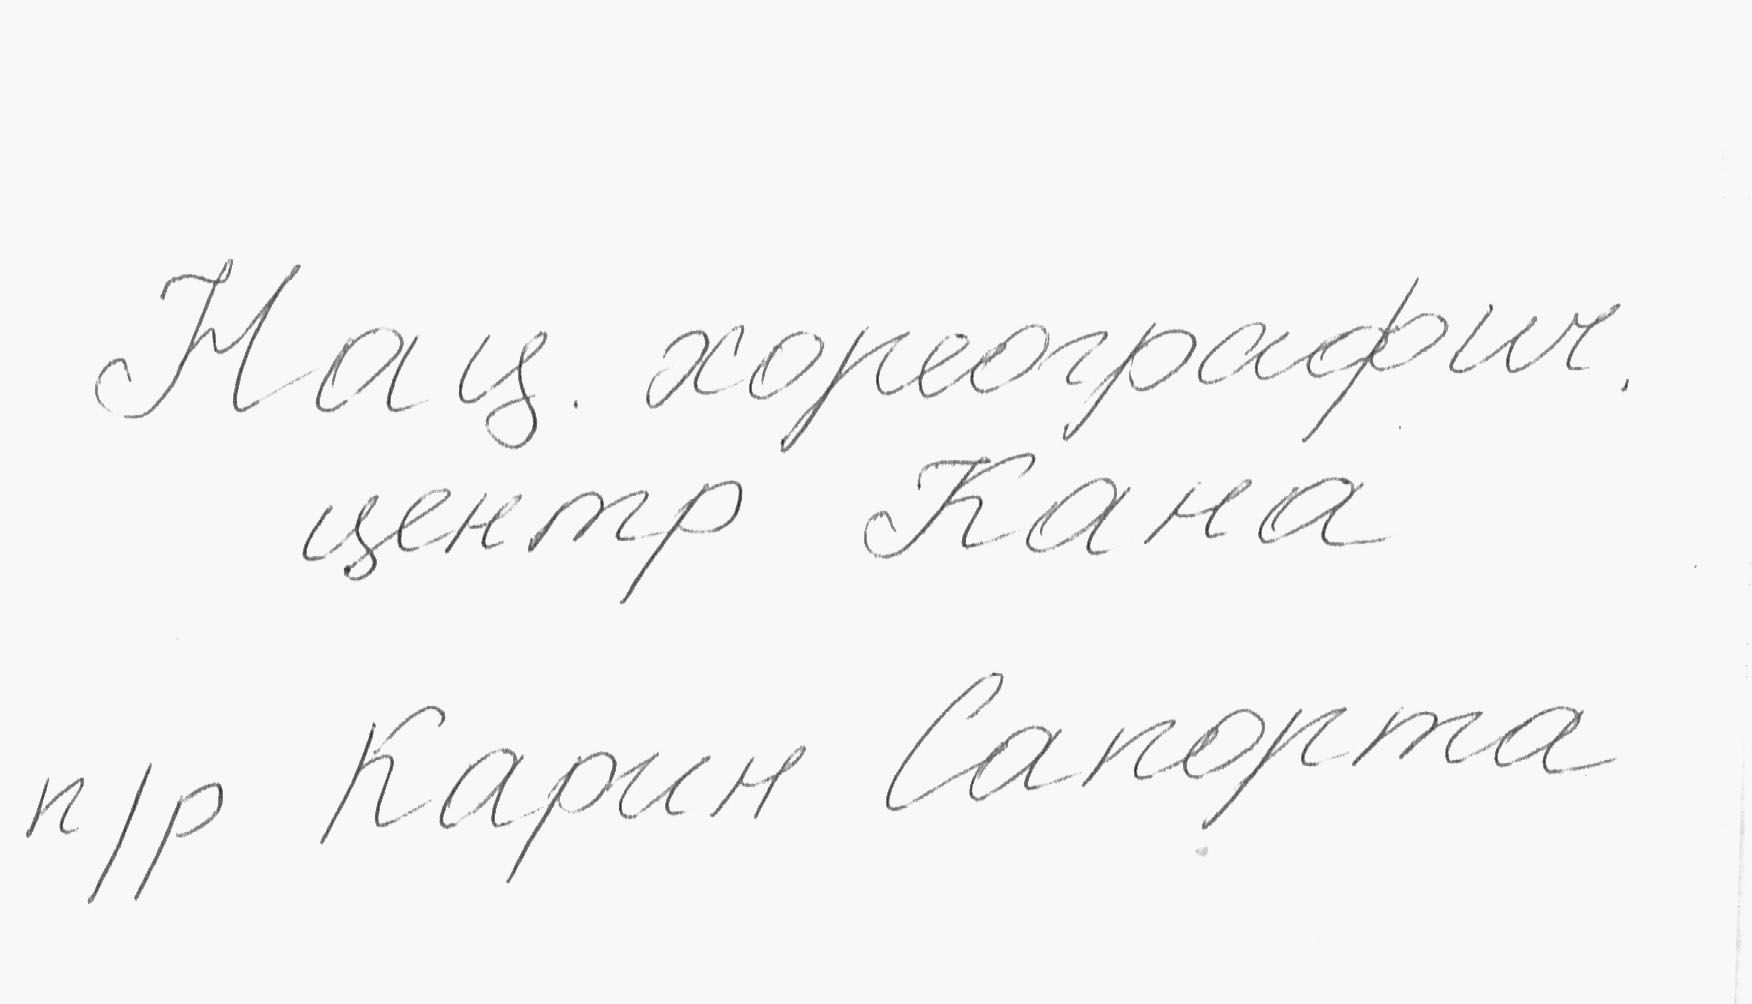 Нац. хореографич.
центр Кана
п/р Карин Сапорта